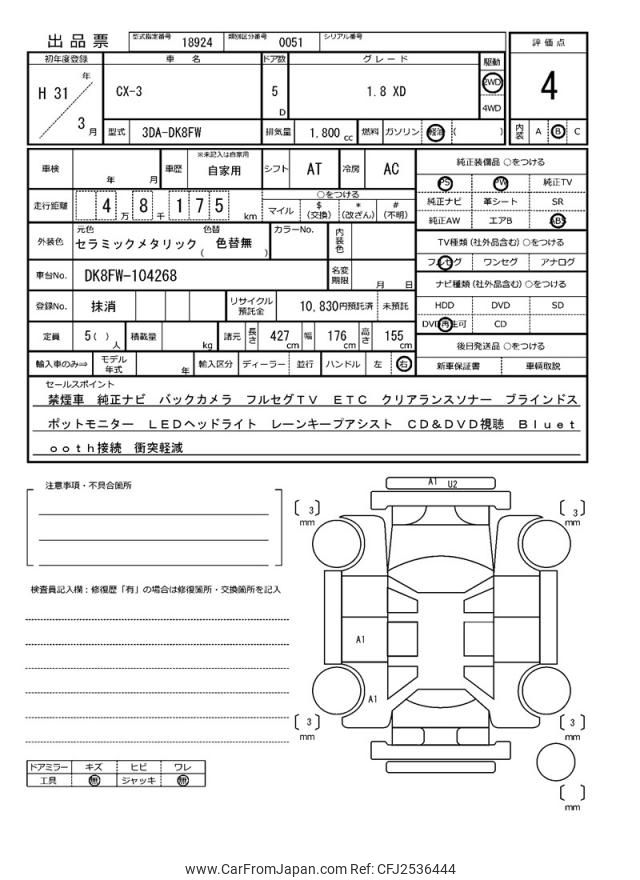 出品票 型式指定番号 18924 類別区分番号 0051 シリアル番号
評価点
4
初年度登録 車名 ドア数 グレード 駆動
H 31 年 3 月 CX-3 5 D 1.8 XD 2WD 4WD
型式 3DA-DK8FW 排気量 1,800 cc 燃料 ガソリン 軽油 ( )
内装 A B C
車検 年 月 車歴 ※未記入は自家用 自家用 シフト AT 冷房 AC
走行距離 4 万 8 千 1 7 5 km ○をつける マイル $ (交換) * (改ざん) # (不明)
外装色 元色 セラミックメタリック 色替 ( 色替無 ) カラーNo. 内装色
車台No. DK8FW-104268 名変期限 月 日
登録No. 抹消 リサイクル預託金 10,830円預託済 未預託
定員 5 ( ) 人 積載量 kg 諸元 長さ 427 cm 幅 176 cm 高さ 155 cm
輸入車のみ⇒ モデル年式 年 輸入区分 ディーラー 並行 ハンドル 左 右
純正装備品 ○をつける
PS PW 純正TV
純正ナビ 革シート SR
純正AW エアB ABS
TV種類 (社外品含む) ○をつける
フルセグ ワンセグ アナログ
ナビ種類 (社外品含む) ○をつける
HDD DVD SD
DVD再生可 CD
後日発送品 ○をつける
新車保証書 車輌取説
セールスポイント
禁煙車 純正ナビ バックカメラ フルセグTV ETC クリアランスソナー ブラインドス
ポットモニター LEDヘッドライト レーンキープアシスト CD&DVD視聴 Bluet
ooth接続 衝突軽減
注意事項・不具合箇所
検査員記入欄：修復歴「有」の場合は修復箇所・交換箇所を記入
A1 U2
[ 3 ] mm
[ 3 ] mm
A1
A1
[ 3 ] mm
[ 3 ] mm
[ ] mm
ドアミラー キズ ヒビ ワレ
工具 無 ジャッキ 無
www.CarFromJapan.com Ref: CFJ2536444